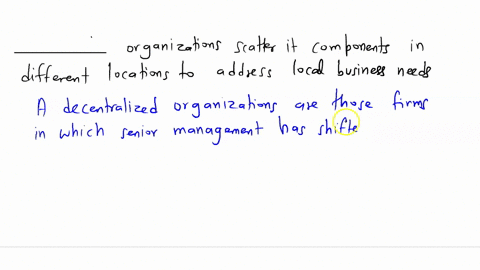 __________ organizations scatter it components in
different locations to address local business needs
A decentralized organizations are those firms
in which senior management has shifte